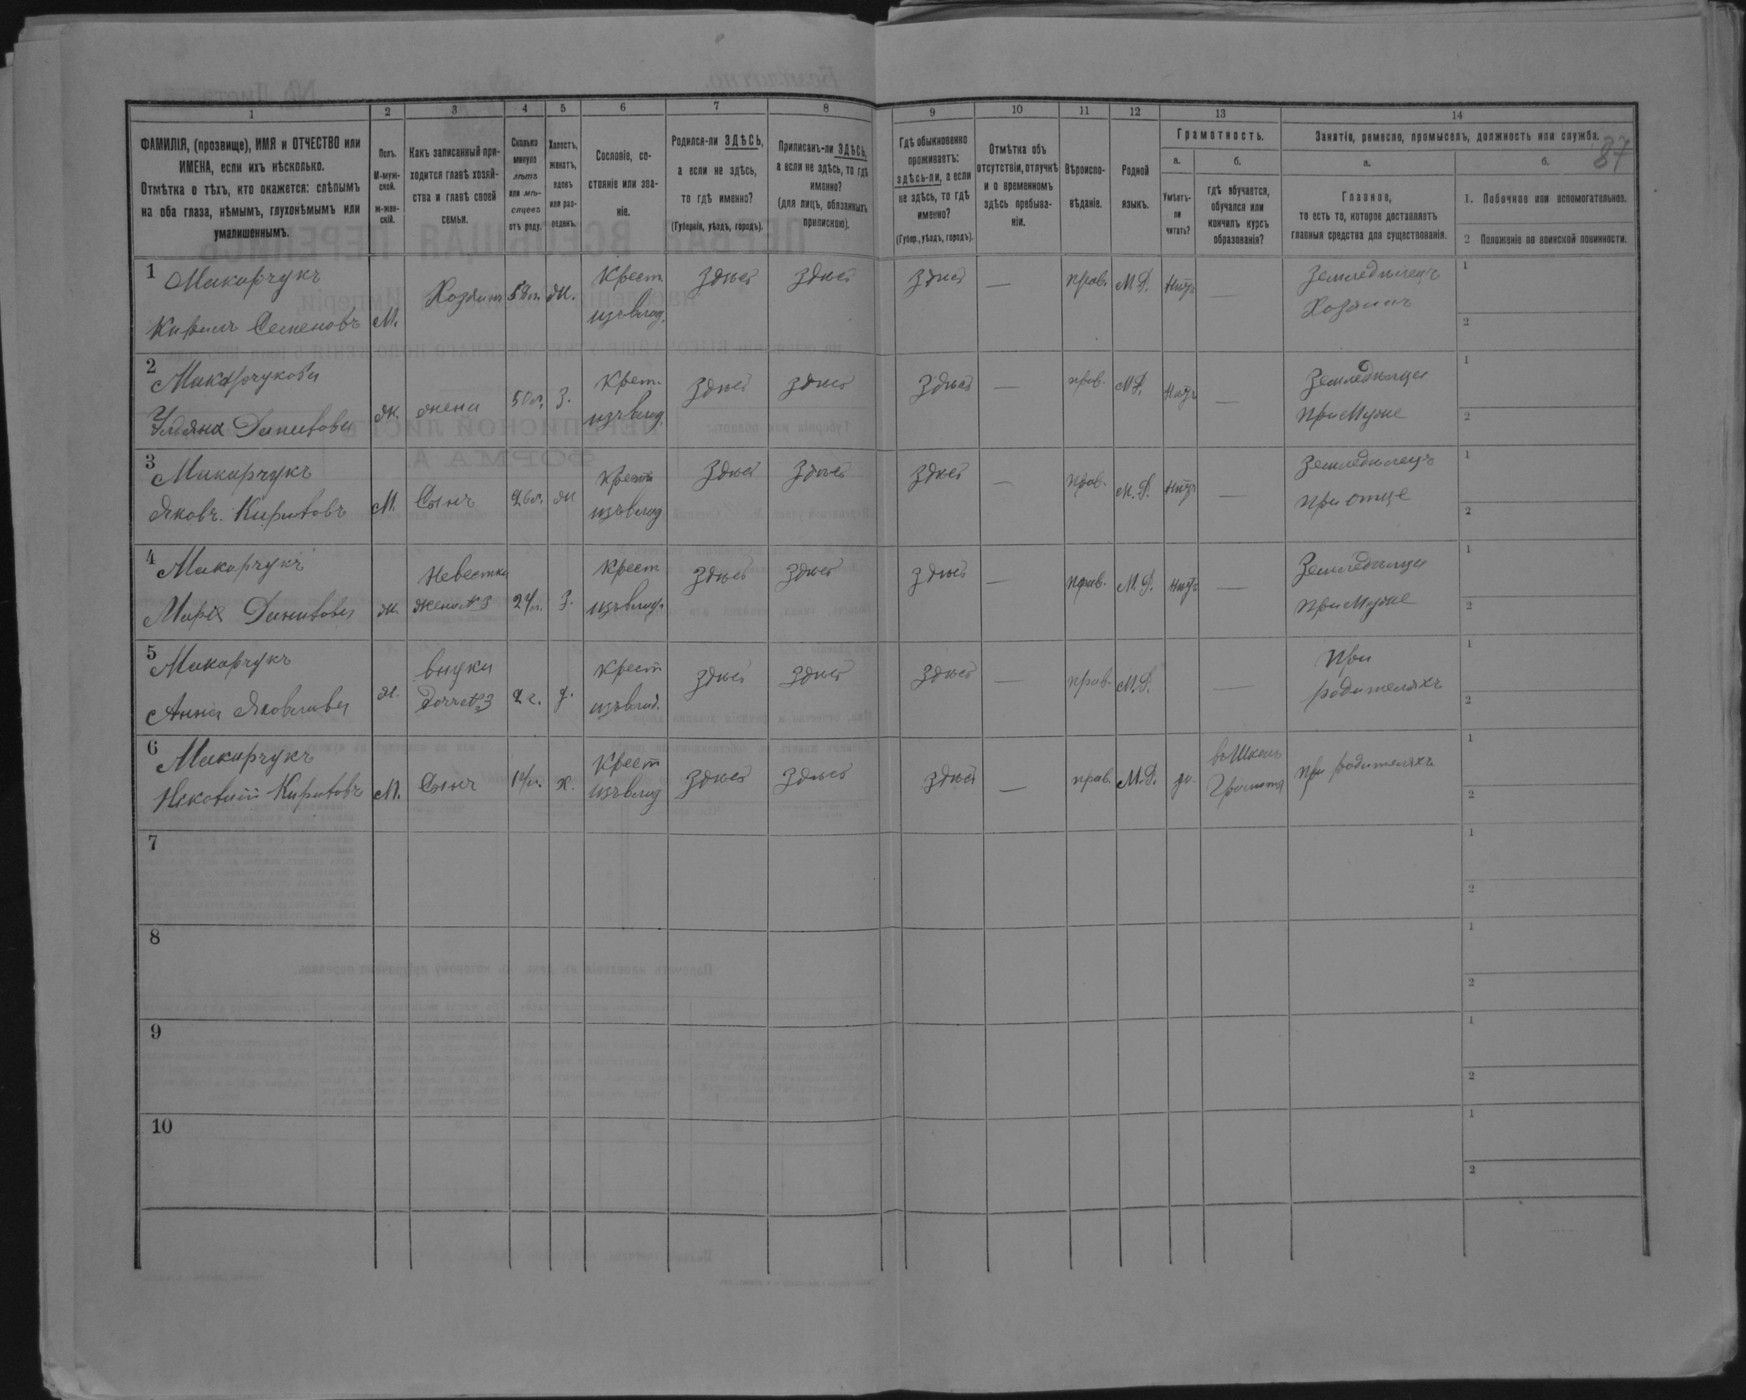 87
1 2 3 4 5 6 7 8 9 10 11 12 13 14
ФАМИЛІЯ, (прозвище), ИМЯ и ОТЧЕСТВО или
ИМЕНА, если ихъ нѣсколько.
Отмѣтка о тѣхъ, кто окажется: слѣпымъ
на оба глаза, нѣмымъ, глухонѣмымъ или
умалишеннымъ.
Полъ.
М-муж-
ской.
Ж-жен-
скій.
Какъ записанный при-
ходится главѣ хозяй-
ства и главѣ своей
семьи.
Сколько
минуло
лѣтъ
или мѣ-
сяцевъ
отъ роду.
Холостъ,
женатъ,
вдовъ
или раз-
веденъ.
Сословіе, со-
стояніе или зва-
ніе.
Родился-ли ЗДѢСЬ,
а если не здѣсь,
то гдѣ именно?
(Губернія, уѣздъ, городъ).
Приписанъ-ли ЗДѢСЬ,
а если не здѣсь, то гдѣ
именно?
(для лицъ, обязанныхъ
припискою).
Гдѣ обыкновенно
проживаетъ:
здѣсь-ли, а если
не здѣсь, то гдѣ
именно?
(Губер., уѣздъ, городъ).
Отмѣтка объ
отсутствіи, отлучкѣ
и о временномъ
здѣсь пребыва-
ніи.
Вѣроиспо-
вѣданіе.
Родной
языкъ.
Грамотность.
а.
Умѣетъ-
ли
читать?
б.
гдѣ обучается,
обучался или
кончилъ курсъ
образованія?
Занятія, ремесло, промыселъ, должность или служба.
а.
Главное,
то есть то, которое доставляетъ
главныя средства для существованія.
б.
1. Побочное или вспомогательное.
2 Положеніе по воинской повинности.
1 Макарчукъ
Кирилъ Семеновъ М. Хозяинъ 58 л. Ж. Крест. изъ влад. Здѣсь Здѣсь Здѣсь — прав. М.Р. Нѣтъ — Земледѣлецъ Хозяинъ 1 2
2 Макарчукова
Ульяна Данилова Ж. жена 50 л. З. Крест. изъ влад. Здѣсь Здѣсь Здѣсь — прав. М.Р. Нѣтъ — Земледѣлица при Муже 1 2
3 Макарчукъ
Яковъ Кириловъ М. Сынъ 26 л. Ж Крест изъ влад. Здѣсь Здѣсь Здѣсь — прав. М.Р. Нѣтъ — Земледѣлецъ при отце 1 2
4 Макарчукъ
Марія Данилова Ж. Невестка жена №3 24 л. З. Крест изъ влад. Здѣсь Здѣсь Здѣсь — прав. М.Р. Нѣтъ — Земледѣлица при Муже 1 2
5 Макарчукъ
Анна Яковлева Ж. внука Доч. №3 2 г. Д. Крест изъ влад. Здѣсь Здѣсь Здѣсь — прав. М.Р. — при родителяхъ 1 2
6 Макарчукъ
Кириловъ М. Сынъ Х. Крест изъ влад Здѣсь Здѣсь Здѣсь — прав. М.Р. да въ Школѣ Грамоты при родителяхъ 1 2
7 1 2
8 1 2
9 1 2
10 1 2